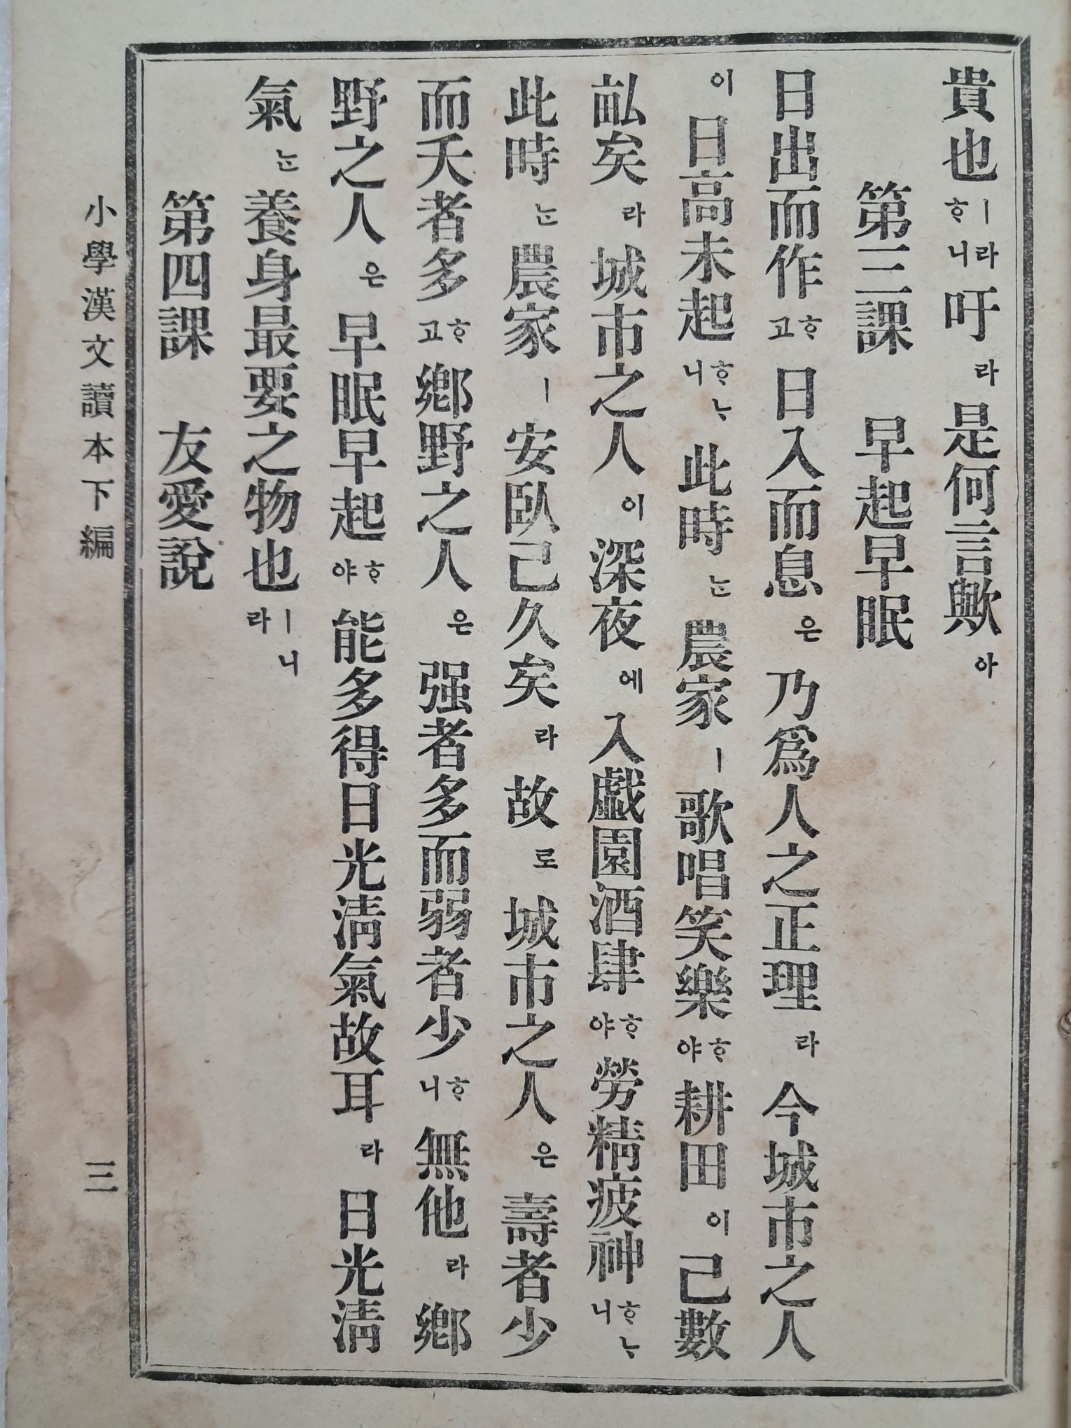 貴也ㅣ라ᄒᆞ니吁라是何言歟아
第三課 早起早眠
日出而作ᄒᆞ고日入而息은乃爲人之正理라今城市之人
이日高未起ᄒᆞᄂᆞ니此時ᄂᆞᆫ農家ㅣ歌唱笑樂ᄒᆞ야耕田이己數
畝矣라城市之人이深夜에入戱園酒肆ᄒᆞ야勞精疲神ᄒᆞᄂᆞ니
此時ᄂᆞᆫ農家ㅣ安臥己久矣라故로城市之人은壽者少
而夭者多ᄒᆞ고鄕野之人은强者多而弱者少ᄒᆞ니無他라鄕
野之人은早眠早起ᄒᆞ야能多得日光淸氣故耳라日光淸
氣ᄂᆞᆫ養身最要之物也ㅣ니라
第四課 友愛說
小學漢文讀本下編 三